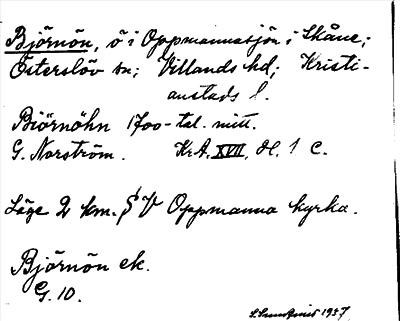 Björnön, ö i Oppmannasjön i Skåne;
Österslöv sn; Villands hd; Kristi-
anstads l.
Biörnöhn 1700-tal. mitt.
G. Norström. KrA. XVII, H. 1 c.
Läge 2 km. S V Oppmanna kyrka.
Björnön ek.
G. 10.
1937